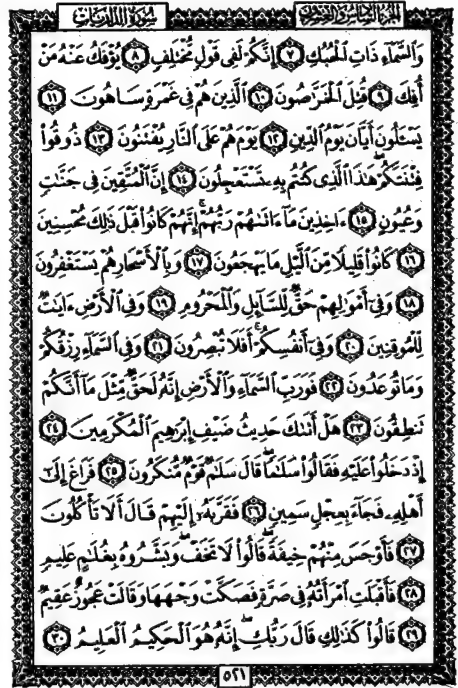 الجزء السادس والعشرون
سورة الذاريات
وَالسَّمَآءِ ذَاتِ ٱلْحُبُكِ ٧ إِنَّكُمْ لَفِى قَوْلٍ مُّخْتَلِفٍ ٨ يُؤْفَكُ عَنْهُ مَنْ
أُفِكَ ٩ قُتِلَ ٱلْخَرَّٰصُونَ ١٠ ٱلَّذِينَ هُمْ فِى غَمْرَةٍ سَاهُونَ ١١
يَسْـَٔلُونَ أَيَّانَ يَوْمُ ٱلدِّينِ ١٢ يَوْمَ هُمْ عَلَى ٱلنَّارِ يُفْتَنُونَ ١٣ ذُوقُوا۟
فِتْنَتَكُمْ هَٰذَا ٱلَّذِى كُنتُم بِهِۦ تَسْتَعْجِلُونَ ١٤ إِنَّ ٱلْمُتَّقِينَ فِى جَنَّٰتٍ
وَعُيُونٍ ١٥ ءَاخِذِينَ مَآ ءَاتَىٰهُمْ رَبُّهُمْ ۚ إِنَّهُمْ كَانُوا۟ قَبْلَ ذَٰلِكَ مُحْسِنِينَ
١٦ كَانُوا۟ قَلِيلًا مِّنَ ٱلَّيْلِ مَا يَهْجَعُونَ ١٧ وَبِٱلْأَسْحَارِ هُمْ يَسْتَغْفِرُونَ
١٨ وَفِىٓ أَمْوَٰلِهِمْ حَقٌّ لِّلسَّآئِلِ وَٱلْمَحْرُومِ ١٩ وَفِى ٱلْأَرْضِ ءَايَٰتٌ
لِّلْمُوقِنِينَ ٢٠ وَفِىٓ أَنفُسِكُمْ ۚ أَفَلَا تُبْصِرُونَ ٢١ وَفِى ٱلسَّمَآءِ رِزْقُكُمْ
وَمَا تُوعَدُونَ ٢٢ فَوَرَبِّ ٱلسَّمَآءِ وَٱلْأَرْضِ إِنَّهُۥ لَحَقٌّ مِّثْلَ مَآ أَنَّكُمْ
تَنطِقُونَ ٢٣ هَلْ أَتَىٰكَ حَدِيثُ ضَيْفِ إِبْرَٰهِيمَ ٱلْمُكْرَمِينَ ٢٤
إِذْ دَخَلُوا۟ عَلَيْهِ فَقَالُوا۟ سَلَٰمًا ۖ قَالَ سَلَٰمٌ قَوْمٌ مُّنكَرُونَ ٢٥ فَرَاغَ إِلَىٰٓ
أَهْلِهِۦ فَجَآءَ بِعِجْلٍ سَمِينٍ ٢٦ فَقَرَّبَهُۥٓ إِلَيْهِمْ قَالَ أَلَا تَأْكُلُونَ
٢٧ فَأَوْجَسَ مِنْهُمْ خِيفَةً ۖ قَالُوا۟ لَا تَخَفْ ۖ وَبَشَّرُوهُ بِغُلَٰمٍ عَلِيمٍ
٢٨ فَأَقْبَلَتِ ٱمْرَأَتُهُۥ فِى صَرَّةٍ فَصَكَّتْ وَجْهَهَا وَقَالَتْ عَجُوزٌ عَقِيمٌ
٢٩ قَالُوا۟ كَذَٰلِكِ قَالَ رَبُّكِ ۖ إِنَّهُۥ هُوَ ٱلْحَكِيمُ ٱلْعَلِيمُ ٣٠
٥٢١